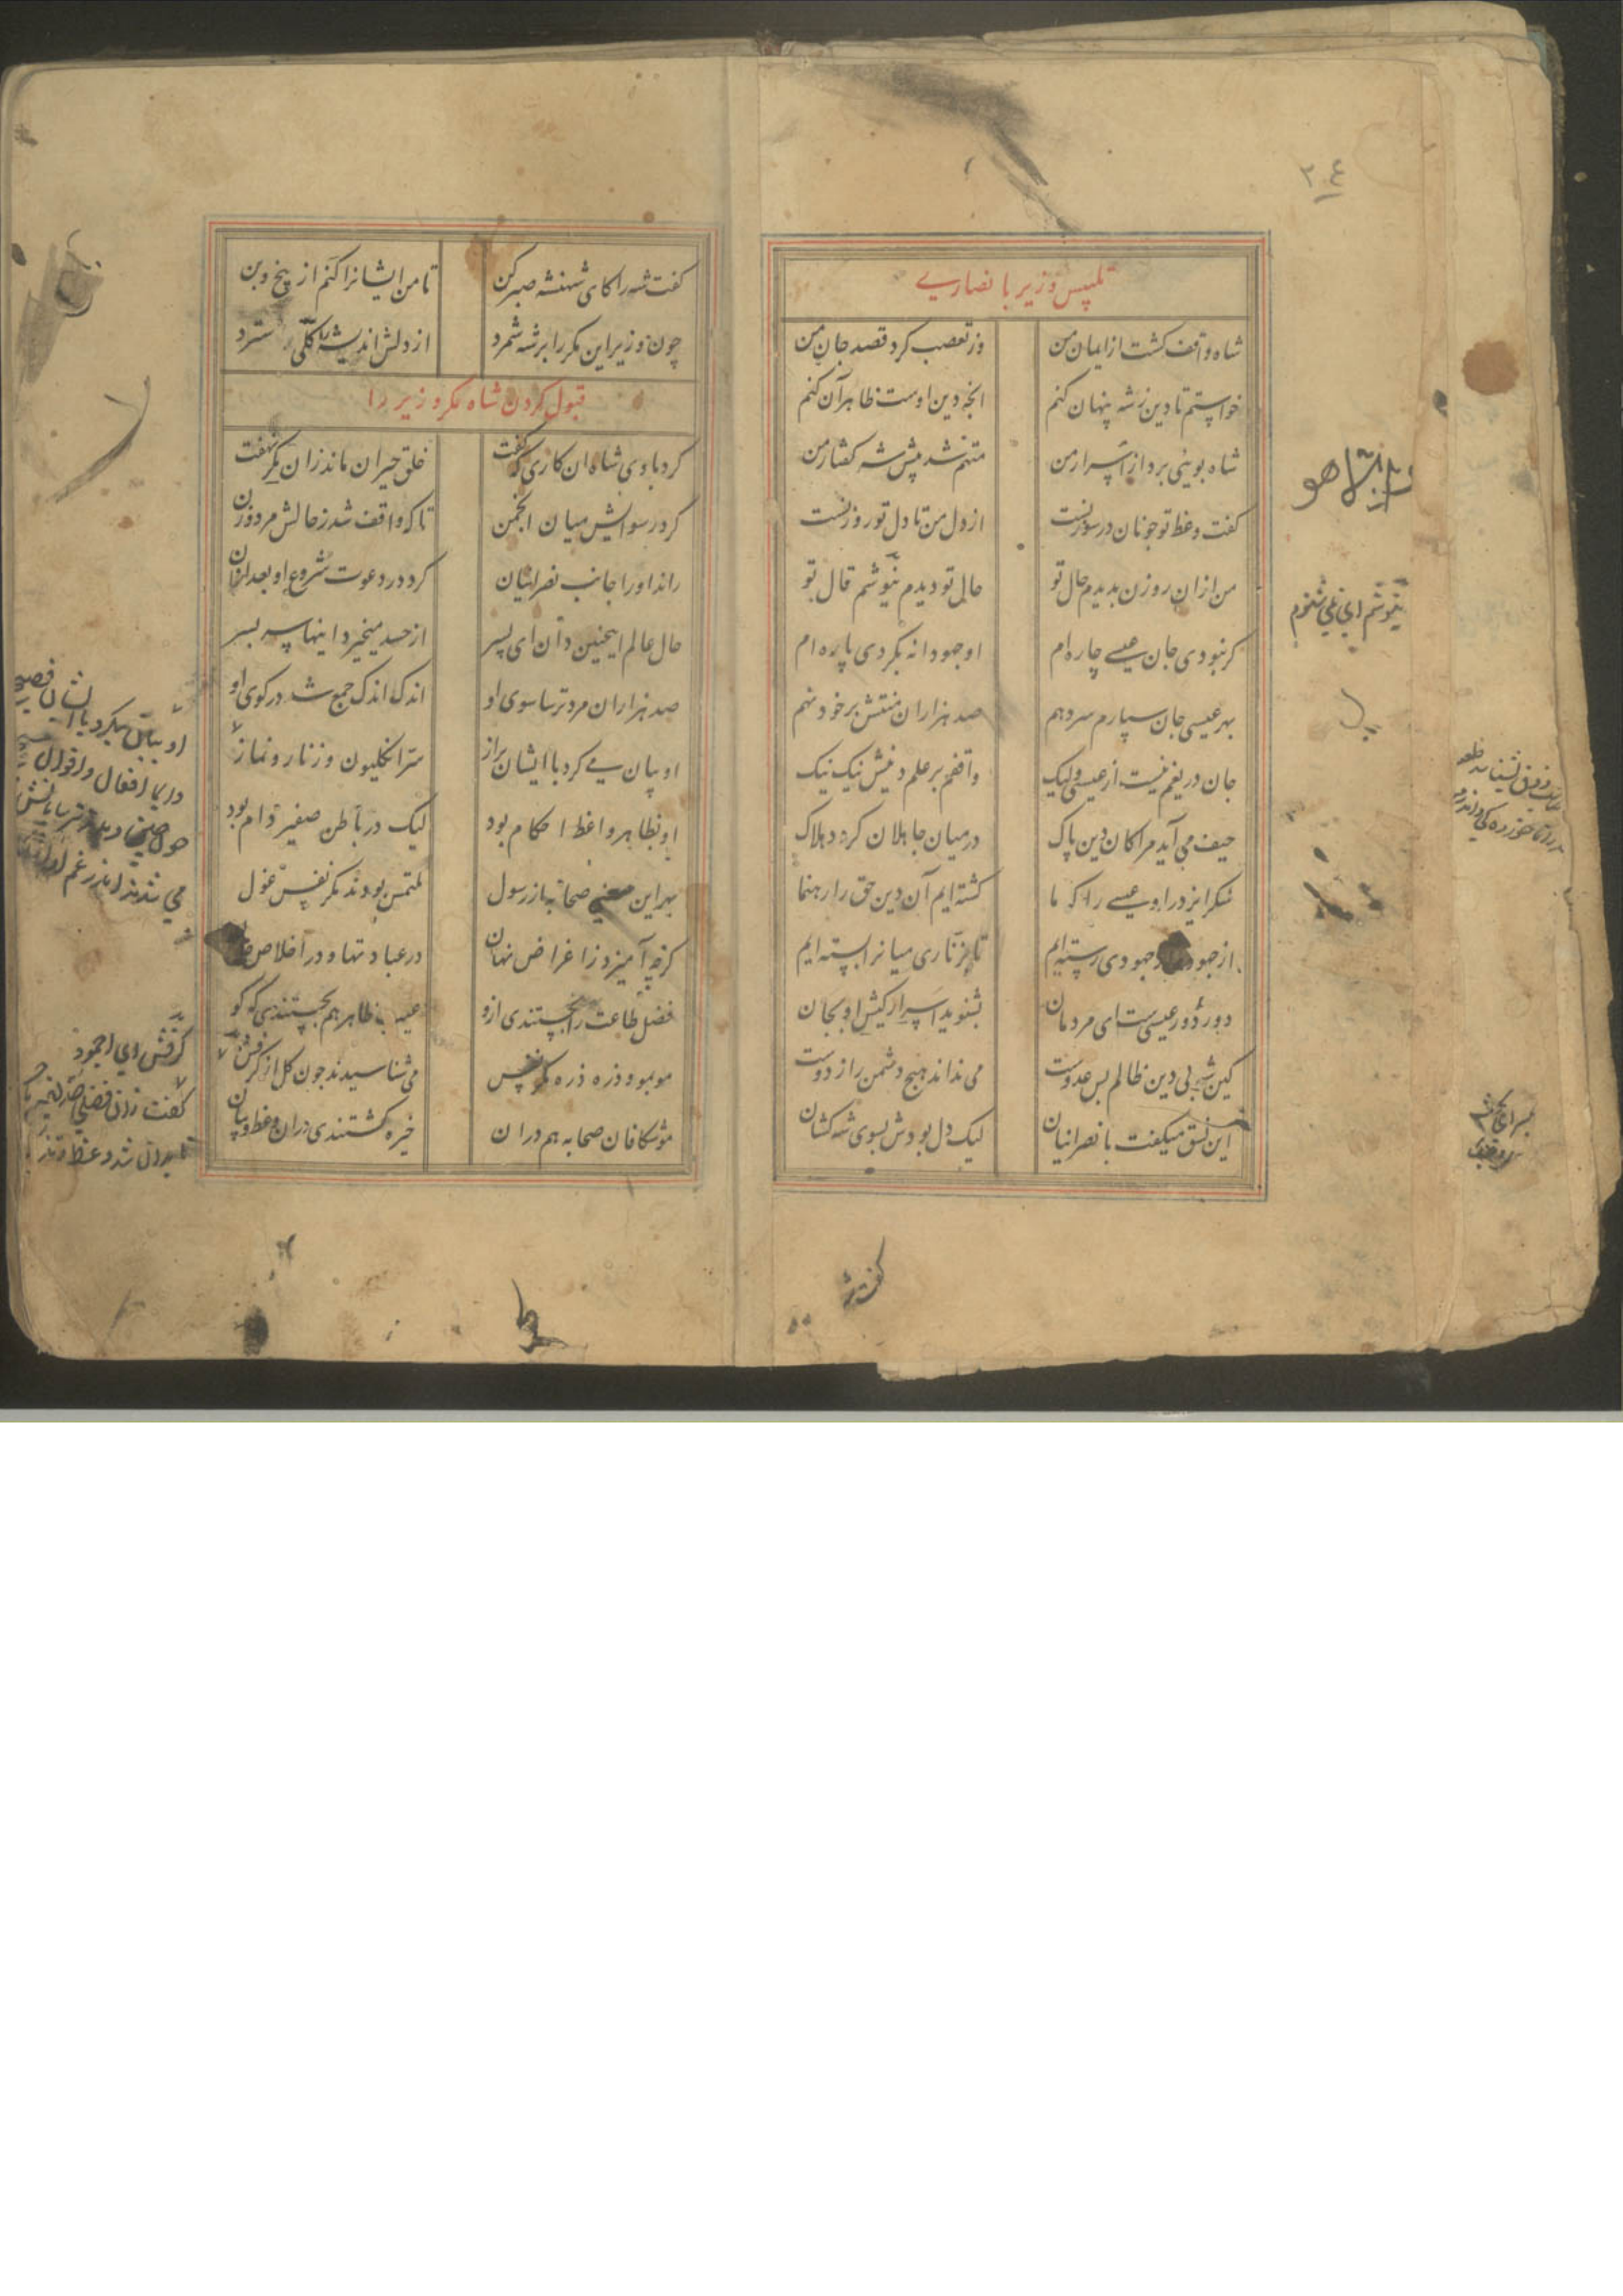 تلبیس وزیر با نصاری
شاه واقف گشت از ایمان من وز تعصب کرد قصد جان من
خواستم تا دین ز شه پنهان کنم انچه دین اوست ظاهر آن کنم
شاه بوئی برد از اسرار من متهم شد پیش شه گفتار من
گفت وعظ تو چو نان در سوزنست از دل من تا دل تو روزنست
من ازان روزن بدیدم حال تو حال تو دیدم ننیوشم قال تو
گر نبودی جان عیسی چاره ام او جهودانه بکردی پاره ام
بهر عیسی جان سپارم سر دهم صد هزاران منتش بر خود نهم
جان دریغم نیست از عیسی ولیک واقفم بر علم دینش نیک نیک
حیف می آید مرا کان دین پاک در میان جاهلان گردد هلاک
شکر ایزد را و عیسی را که ما گشته ایم آن دین حق را رهنما
از جهود و جهودی رسته ایم تا بزناری میانرا بسته ایم
دور دور عیسی ست ای مردمان بشنوید اسرار کیش او بجان
کین شه بی دین ظالم بس عدوست می نداند هیچ دشمن را ز دوست
این نسق میگفت با نصرانیان لیک دل بودش بسوی شه کشان
ننیوشم ای نمی شنوم
گفت شه
گفت شه را کای شهنشه صبر کن تا من ایشانرا کنم از بیخ و بن
چون وزیر این مکر را بر شه شمرد از دلش اندیشه را کلی سترد
قبول کردن شاه مکر وزیر را
کرد با وی شاه ان کاری که گفت خلق حیران ماند زان مکر نهفت
کرد رسوایش میان انجمن تا که واقف شد ز حالش مرد و زن
راند او را جانب نصرانیان کرد در دعوت شروع او بعد ازان
حال عالم اینچنین دان ای پسر از حسد میخیزد اینها سر بسر
صد هزاران مرد ترسا سوی او اندک اندک جمع شد در کوی او
او بیان می کرد با ایشان براز سر انکلیون و زنار و نماز
او بظاهر واعظ احکام بود لیک در باطن صفیر و دام بود
بهر این معنی صحابه از رسول ملتمس بودند مکر نفس غول
کو چه آمیزد ز اغراض نهان در عبادتها و در اخلاص
فضل طاعت را نجستندی ازو عیب ظاهر هم بجستندی که کو
مو بمو و ذره ذره مکر نفس می شناسیدند چون گل از کرفش
موشکافان صحابه هم در ان خیره گشتندی دران وعظ و بیان
او بیان میکرد با ایشان فصیح
دایما افعال و اقوال
می شدند اندر غم او
کرفش ای اجمود